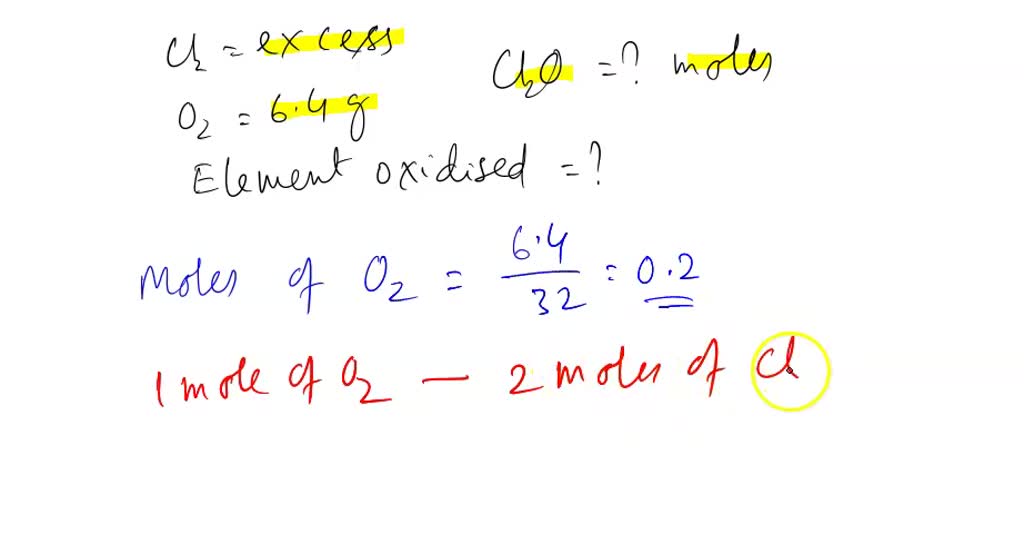 Cl₂ = excess
Cl₂O = ? moles
O₂ = 6.4 g
Element oxidised = ?
Moles of O₂ = 6.4/32 = 0.2
1 mole of O₂ — 2 moles of Cl